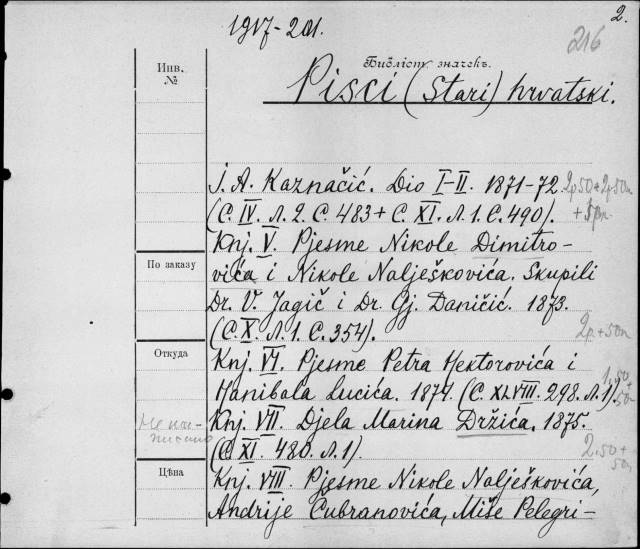 2.
1917-201.
216
Библіот. значекъ.
Pisci (Stari) hrvatski.
Инв.
№
J. A. Kaznačić. Dio I–II. 1871-72. 2р50+2р50к
(С. IV. Л. 2. С. 483 + С. XI. Л. 1. С. 490). +5рп.
Knj. V. Pjesme Nikole Dimitro-
vića i Nikole Nalješkovića. Skupili
По заказу
Dr. V. Jagič i Dr. Gj. Daničić. 1873.
(С. X. Л. 1. С. 354). 2р+50п
Откуда
Knj. VI. Pjesme Petra Hektorovića i
Hanibala Lucića. 1874. (С. XLVIII. 298. Л. 1) 1,50+50п
Knj. VII. Djela Marina Držića. 1875.
Не ки-
писано
(С XI. 480. Л. 1). 2.50+50п
Цѣна
Knj. VIII. Pjesme Nikole Nalješkovića,
Andrije Čubranovića, Miše Pelegri-